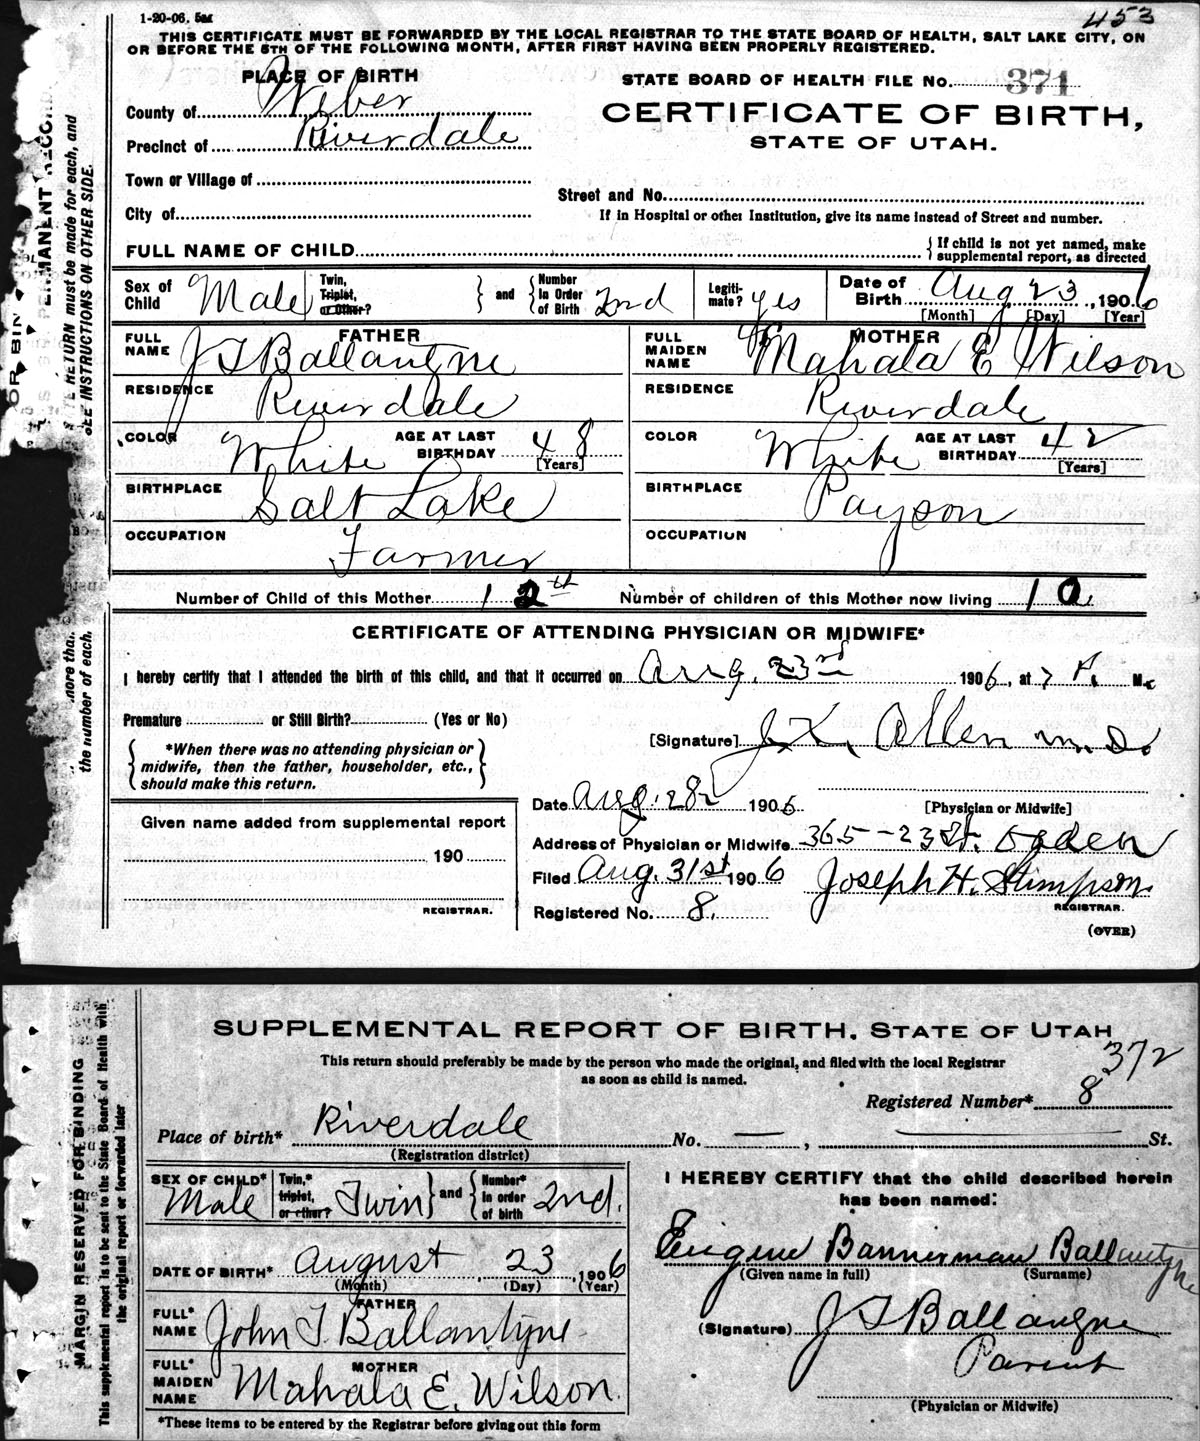 1-20-06. 5m
453
THIS CERTIFICATE MUST BE FORWARDED BY THE LOCAL REGISTRAR TO THE STATE BOARD OF HEALTH, SALT LAKE CITY, ON
OR BEFORE THE 5TH OF THE FOLLOWING MONTH, AFTER FIRST HAVING BEEN PROPERLY REGISTERED.
PLACE OF BIRTH
STATE BOARD OF HEALTH FILE No. 371
County of Weber
CERTIFICATE OF BIRTH,
Precinct of Riverdale
STATE OF UTAH.
Town or Village of
Street and No.
City of
If in Hospital or other Institution, give its name instead of Street and number.
FULL NAME OF CHILD
{ If child is not yet named, make
supplemental report, as directed
Sex of Child Male
Twin, Triplet, or Other? } and { Number in Order of Birth 2nd
Legitimate? yes
Date of Birth Aug 23, 1906
[Month] [Day] [Year]
FATHER
FULL NAME J T Ballantyne
RESIDENCE Riverdale
COLOR White AGE AT LAST BIRTHDAY 48
[Years]
BIRTHPLACE Salt Lake
OCCUPATION Farmer
MOTHER
FULL MAIDEN NAME Mahala E Wilson
RESIDENCE Riverdale
COLOR White AGE AT LAST BIRTHDAY 42
[Years]
BIRTHPLACE Payson
OCCUPATION
Number of Child of this Mother 12th Number of children of this Mother now living 10
CERTIFICATE OF ATTENDING PHYSICIAN OR MIDWIFE*
I hereby certify that I attended the birth of this child, and that it occurred on Aug. 23rd 1906, at 7 P. M.
Premature or Still Birth? (Yes or No)
{ *When there was no attending physician or
midwife, then the father, householder, etc.,
should make this return. }
[Signature] Allen M.D.
Date Aug. 28 1906 [Physician or Midwife]
Given name added from supplemental report
190
REGISTRAR.
Address of Physician or Midwife 365-23 St. Ogden
Filed Aug. 31st 1906 Joseph H. Stimpson
REGISTRAR.
Registered No. 8.
(OVER)
PERMANENT RECORD
RETURN must be made for each, and
SEE INSTRUCTIONS ON OTHER SIDE.
the number of each,
SUPPLEMENTAL REPORT OF BIRTH, STATE OF UTAH
This return should preferably be made by the person who made the original, and filed with the local Registrar
as soon as child is named.
372
Registered Number* 8
Place of birth* Riverdale No. — , — St.
(Registration district)
SEX OF CHILD* Male
Twin,* triplet, or other? Twin } and { Number* in order of birth 2nd.
DATE OF BIRTH* August 23, 1906
(Month) (Day) (Year)
FATHER
FULL* NAME John T. Ballantyne
MOTHER
FULL* MAIDEN NAME Mahala E. Wilson.
*These items to be entered by the Registrar before giving out this form
I HEREBY CERTIFY that the child described herein
has been named:
Eugene Bannerman Ballantyne
(Given name in full) (Surname)
(Signature) J T Ballantyne
Parent
(Physician or Midwife)
MARGIN RESERVED FOR BINDING
This supplemental report is to be sent to the State Board of Health with
the original report or forwarded later